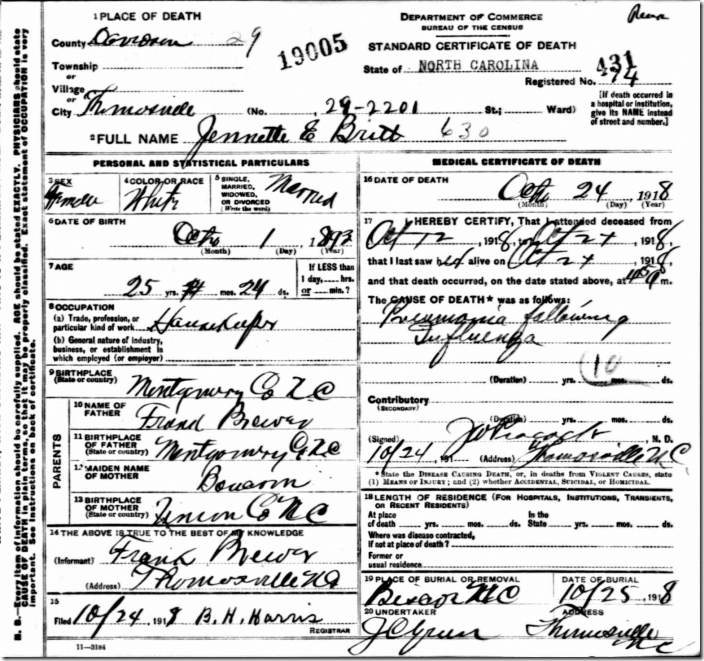 1 PLACE OF DEATH
County Davidson 29
Township
or
Village
or
City Thomasville (No. 29-2201 St.; Ward)
2 FULL NAME Jennette E Britt 630
19005
DEPARTMENT OF COMMERCE
BUREAU OF THE CENSUS
STANDARD CERTIFICATE OF DEATH
State of NORTH CAROLINA
431
Registered No. 74
[If death occurred in
a hospital or institution,
give its NAME instead
of street and number.]
PERSONAL AND STATISTICAL PARTICULARS
3 SEX Female
4 COLOR OR RACE White
5 SINGLE, MARRIED, WIDOWED, OR DIVORCED (Write the word) Married
6 DATE OF BIRTH Oct 1, 1893
(Month) (Day) (Year)
7 AGE
25 yrs. mos. 24 ds.
If LESS than
1 day, hrs.
or min.?
8 OCCUPATION
(a) Trade, profession, or
particular kind of work Housekeeper
(b) General nature of industry,
business, or establishment in
which employed (or employer)
9 BIRTHPLACE
(State or country) Montgomery Co N.C
PARENTS
10 NAME OF
FATHER Frank Brewer
11 BIRTHPLACE
OF FATHER
(State or country) Montgomery Co N.C
12 MAIDEN NAME
OF MOTHER
13 BIRTHPLACE
OF MOTHER
(State or country) Union Co N C
14 THE ABOVE IS TRUE TO THE BEST OF MY KNOWLEDGE
(Informant) Frank Brewer
(Address) Thomasville NC
15
Filed 10/24, 1918 B. H. Harris
REGISTRAR
11-3184
MEDICAL CERTIFICATE OF DEATH
16 DATE OF DEATH
Oct 24, 1918
(Month) (Day) (Year)
17 I HEREBY CERTIFY, That I attended deceased from
Oct 12, 1918, to Oct 24, 1918,
that I last saw her alive on Oct 24, 1918,
and that death occurred, on the date stated above, at m.
The CAUSE OF DEATH* was as follows:
Pneumonia following
Influenza
(10)
(Duration) yrs. mos. ds.
Contributory
(SECONDARY)
(Duration) yrs. mos. ds.
(Signed) , M. D.
10/24, 191 (Address) Thomasville N C
* State the DISEASE CAUSING DEATH, or, in deaths from VIOLENT CAUSES, state
(1) MEANS OF INJURY; and (2) whether ACCIDENTAL, SUICIDAL, or HOMICIDAL.
18 LENGTH OF RESIDENCE (FOR HOSPITALS, INSTITUTIONS, TRANSIENTS,
OR RECENT RESIDENTS)
At place of death yrs. mos. ds. In the State yrs. mos. ds.
Where was disease contracted,
if not at place of death?
Former or
usual residence
19 PLACE OF BURIAL OR REMOVAL
Biscoe N C
DATE OF BURIAL
10/25, 1918
20 UNDERTAKER
J C Green
ADDRESS
Thomasville
NC
N. B.—Every item of information should be carefully supplied. AGE should be stated EXACTLY. PHYSICIANS should state
CAUSE OF DEATH in plain terms, so that it may be properly classified. Exact statement of OCCUPATION is very
important. See instructions on back of certificate.